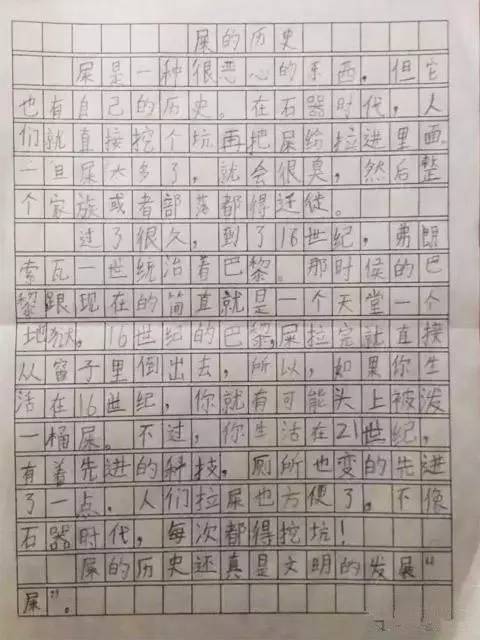 屎的历史
屎是一种很恶心的东西，但它
也有自己的历史。在石器时代，人
们就直接挖个坑再把屎给拉进里面。
一旦屎太多了，就会很臭，然后整
个家族或者部落都得迁徙。
过了很久，到了16世纪，弗朗
索瓦一世统治着巴黎。那时候的巴
黎跟现在的简直就是一个天堂一个
地狱，16世纪的巴黎，屎拉完就直接
从窗子里倒出去，所以，如果你生
活在16世纪，你就有可能头上被泼
一桶屎。不过，你生活在21世纪，
有着先进的科技，厕所也变的先进
了一点。人们拉屎也方便了，不像
石器时代，每次都得挖坑！
屎的历史还真是文明的发展“
屎”。